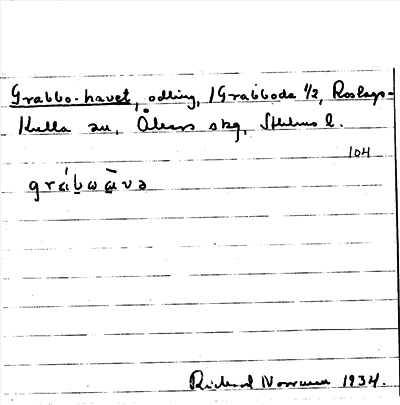 Grabbo-havet, odling, /Grabboda 1/2, Roslags-
Kulla sn, Åkers skg, Sthlms l.
104
grábωāvə
Rickard Norrman 1934.